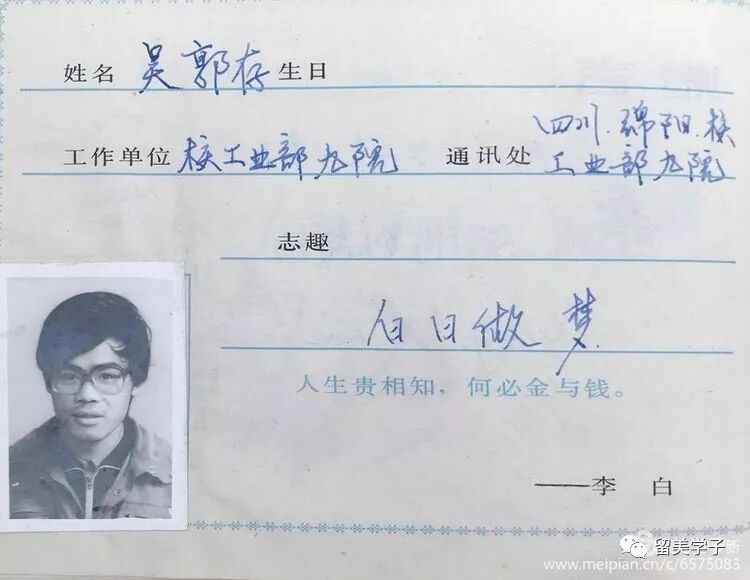 姓名 吴郭存 生日
四川.绵阳.核
工作单位 核工业部九院 通讯处 工业部九院
志趣
白日做梦
人生贵相知,何必金与钱。
——李 白
留美学子
www.meipian.cn/c/6575083